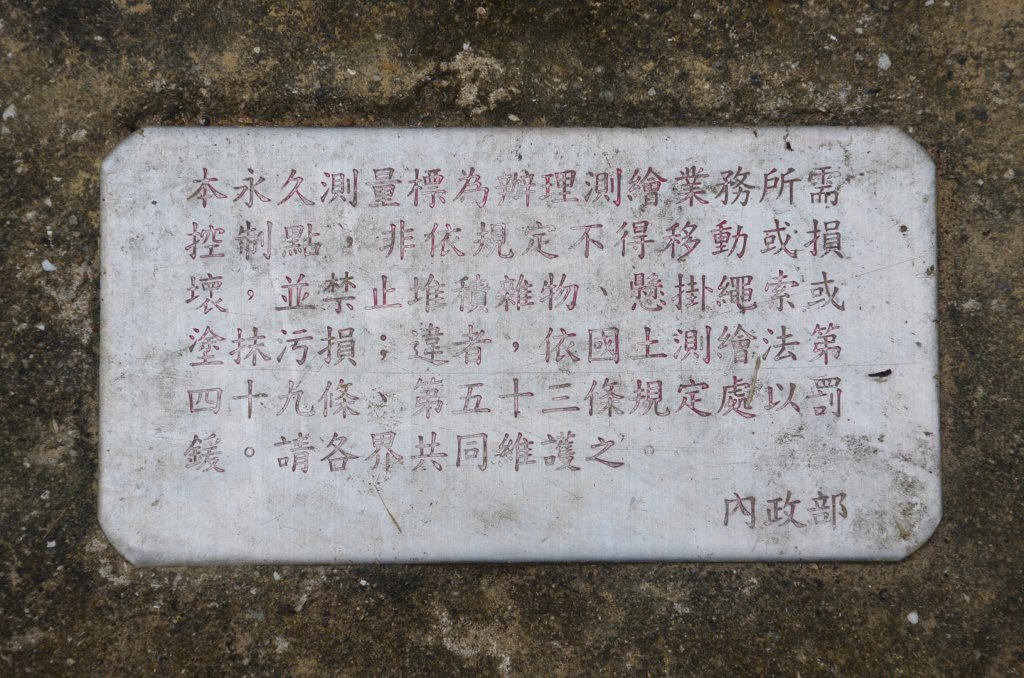 本永久測量標為辦理測繪業務所需
控制點，非依規定不得移動或損
壞，並禁止堆積雜物、懸掛繩索或
塗抹污損；違者，依國土測繪法第
四十九條、第五十三條規定處以罰
鍰。請各界共同維護之。
內政部